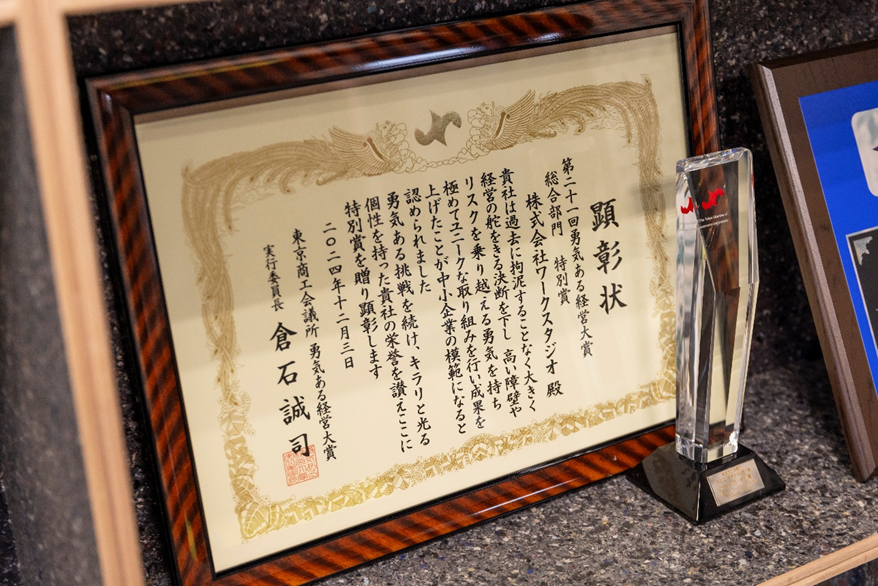 顕彰状
第二十一回勇気ある経営大賞
総合部門 特別賞
株式会社ワークスタジオ 殿
貴社は過去に拘泥することなく大きく
経営の舵をきる決断を下し 高い障壁や
リスクを乗り越える勇気を持ち
極めてユニークな取り組みを行い成果を
上げたことが中小企業の模範になると
認められました
勇気ある挑戦を続け、キラリと光る
個性を持った貴社の栄誉を讃えここに
特別賞を贈り顕彰します
二〇二四年十二月三日
東京商工会議所 勇気ある経営大賞
実行委員長 倉石誠司